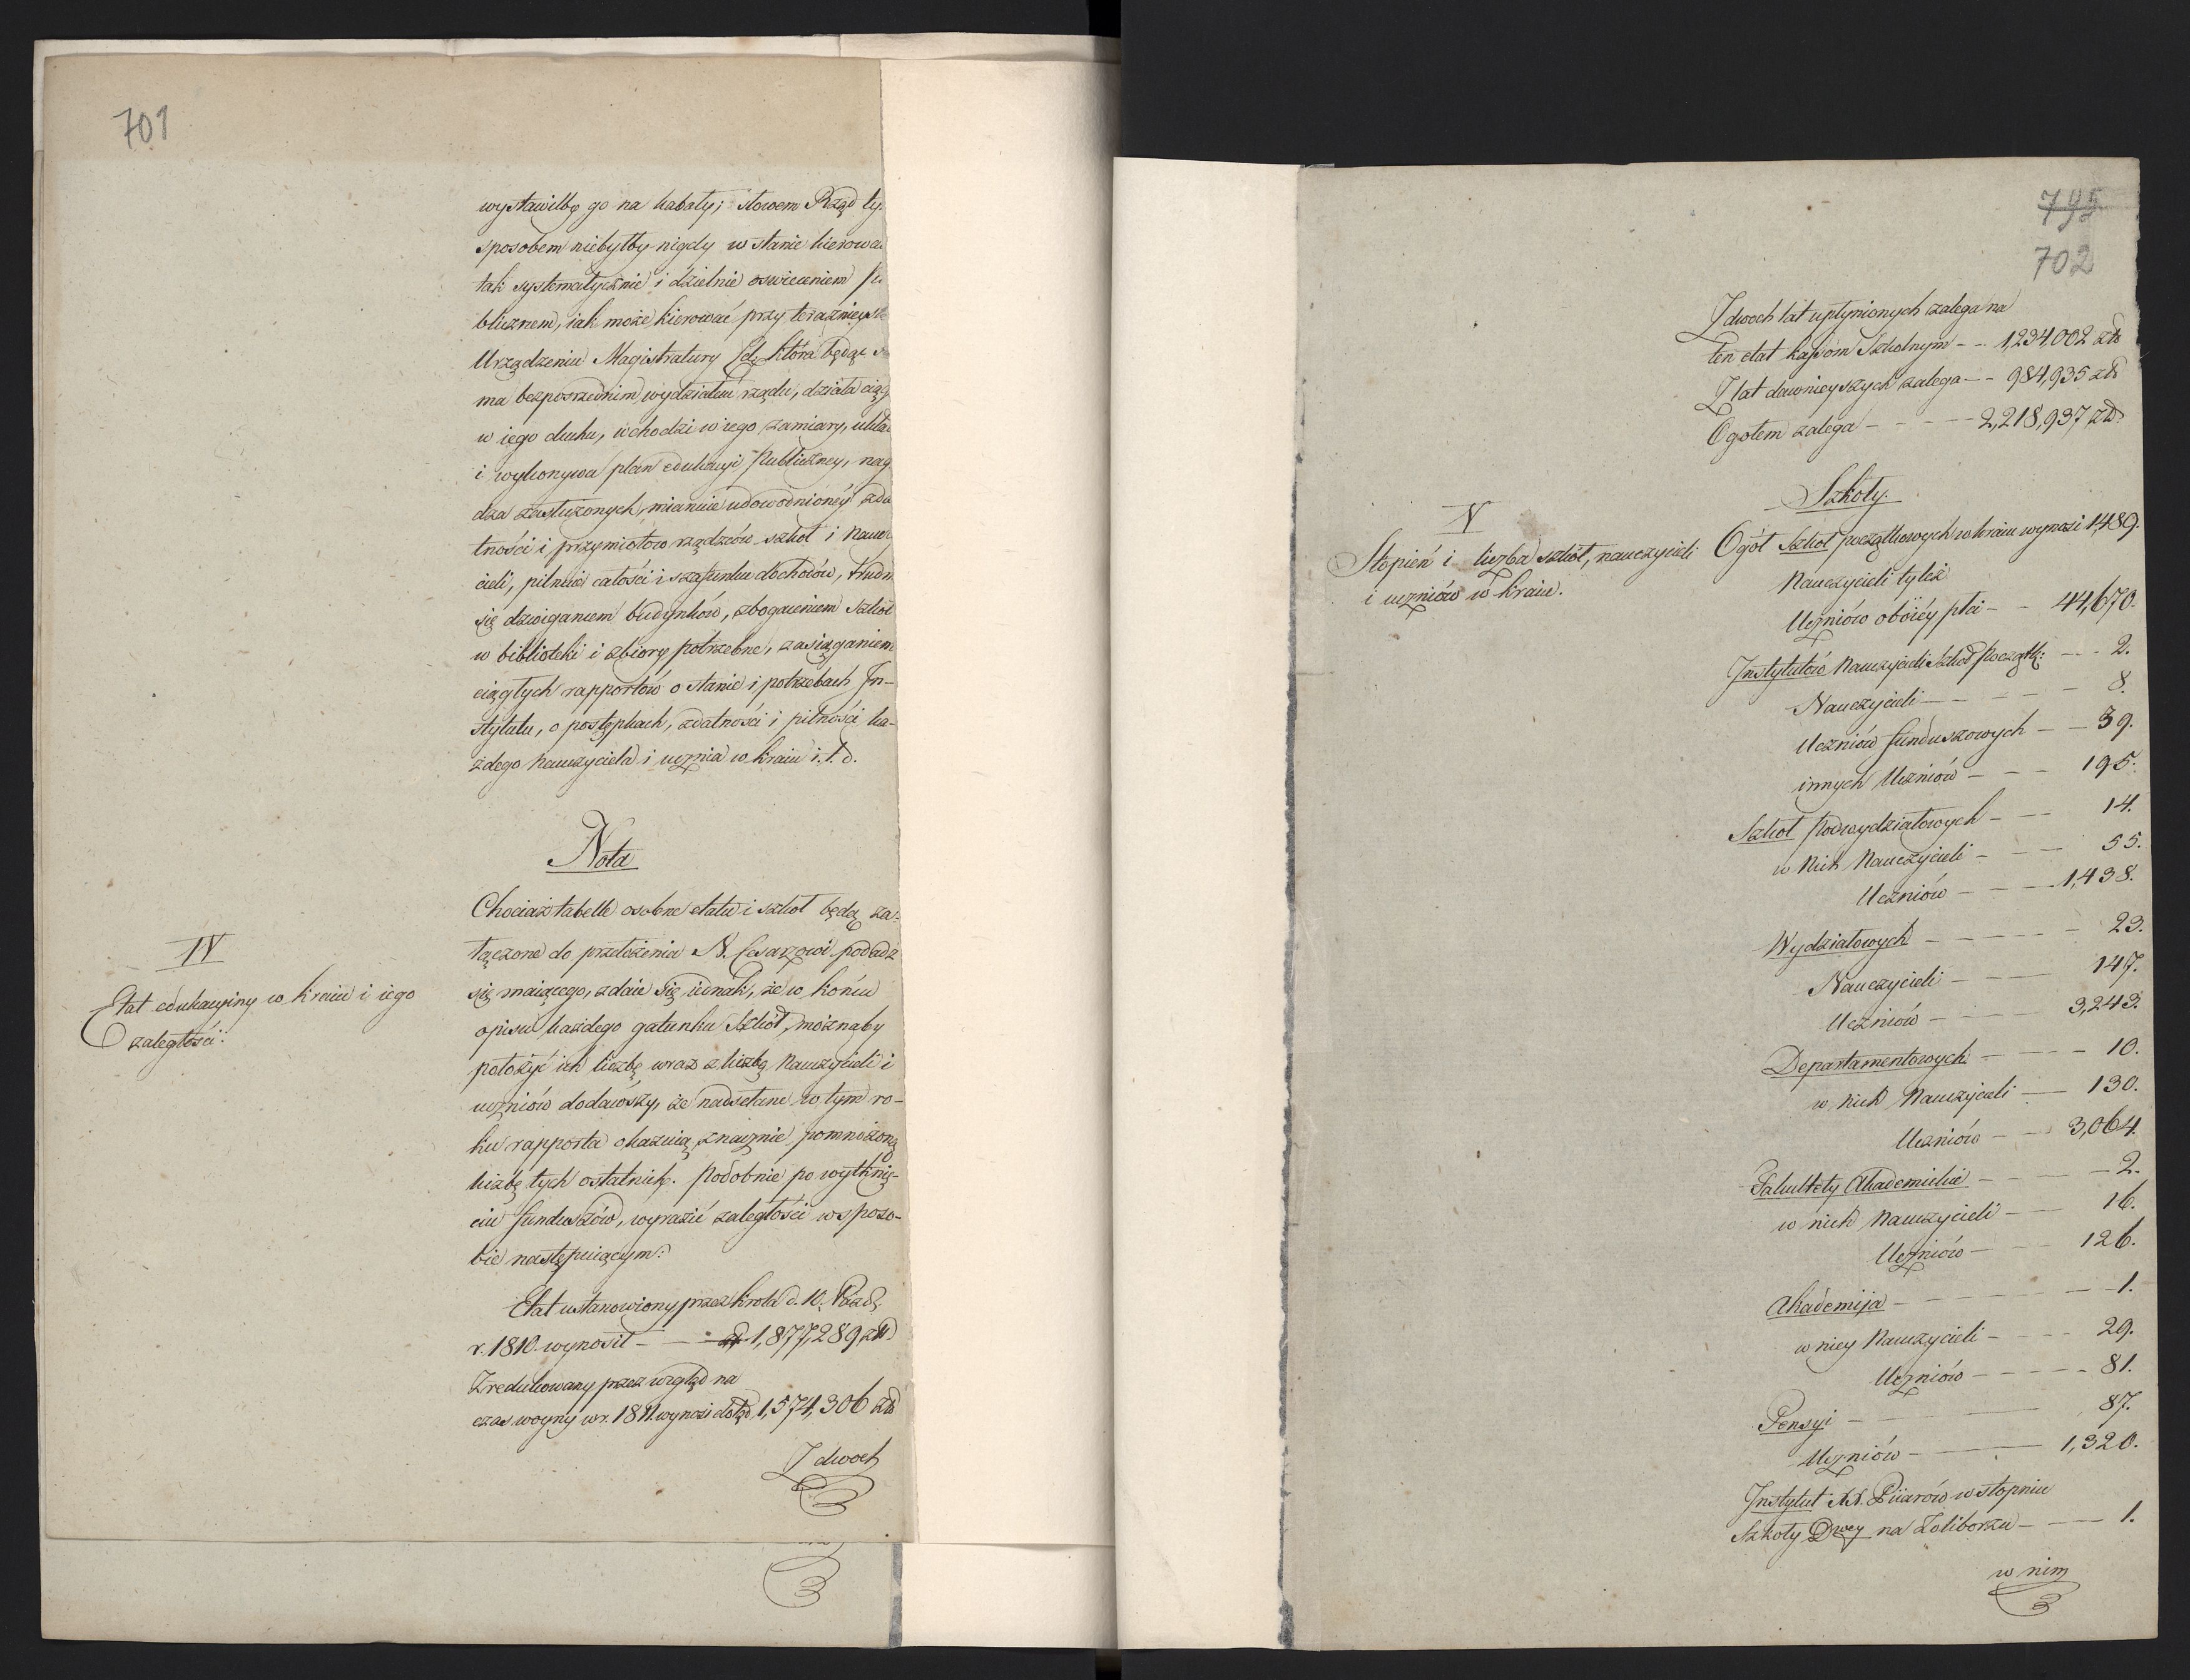 701
wystawiłbę go na kabały; słowem Rząd ty-
sposobem niebyłby nigdy w stanie kierowa
tak systematycznie i dzielnie oswieceniem Pu
blicznem, iak może kierować przy teraznieysz
Urządzeniu Magistratury która będąc
ma bezposrednim wydziałem rządu, działa ciąg
w iego duchu, wchodzi w iego zamiary, ukła
i wykonywa plan edukacyi Publiczney, nag
dza zasłużonych, mianuie udowodnioney zda
tności i przymiotow rządzców szkoł i Nauczy
cieli, pilnuie całości i szafunku dochodów, trudn
się dzwiganiem budynków, zbogaceniem szkół
w biblioteki i zbiory potrzebne, zasiąganiem
ciągłych rapportów o stanie i potrzebach In-
stytutu, o postępkach, zdatności i pilności ka-
żdego Nauczyciela i ucznia w kraiu i. t. d.
Nota
Chociaż tabelle osobne etatu i szkoł będą za-
łączone do przełożenia N. Cesarzowi podadź
się maiącego, zdaie się iednak, że w końcu
opisu każdego gatunku Szkół, możnaby
położyć ich liczbę wraz z liczbą Nauczycieli i
uczniów dodawszy, że nadsełane w tym ro-
ku rapporta okazuią znacznie pomnożoną
liczbę tych ostatnich. Podobnie po wytknię-
ciu funduszów, wyrazić zaległości w sposo-
bie następuiącym:
IV
Etat edukacyiny w kraiu i iego
zaległości.
Etat ustanowiony przez Króla d. 10. Paźdz.
r. 1810. wynosił - - 1,877,289 złł
Zredukowany przez wzgląd na
czas woyny w r. 1811. wynosi dotąd 1,574,306 złł
Z dwoch
795
702
Z dwoch lat upłynionych zalega na
ten etat kassom Szkolnym - - 1,234,002 złł
Z lat dawnieyszych zalega - - 984,935 złł
Ogołem zalega - - - - 2,218,937 złł
V
Stopień i liczba szkół, nauczycieli
i uczniów w kraiu.
Szkoły.
Ogół Szkoł początkowych w kraiu wynosi 1,489.
Nauczycieli tyleż
Uczniów oboiéy płci - - 44,670.
Instytutów Nauczycieli Szkoł Początk: - - - 2.
Nauczycieli - - - - - 8.
Uczniów funduszowych - - 39.
innych Uczniów - - - 195.
Szkoł Podwydziałowych - - - 14.
w Nich Nauczycieli - - - 55.
Uczniów - - - 1,438.
Wydziałowych - - - - - 23.
Nauczycieli - - - 147.
Uczniów - - - - 3,243.
Departamentowych - - - - 10.
w nich Nauczycieli - - 130.
Uczniów - - - 3,064.
Fakultety Akademickie - - - - 2.
w nich Nauczycieli - - - 16.
Uczniów - - - 126.
Akademija - - - - - - 1.
w niey Nauczycieli - - - - 29.
Uczniów - - - - - 81.
Pensyi - - - - 87.
Uczniów - - - - 1,320.
Instytut XX. Piiarów w stopniu
Szkoły Dwey na Żoliborzu - - - 1.
w nim